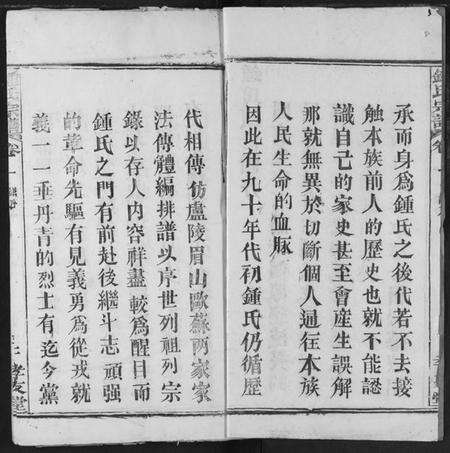 承而身爲鍾氏之後代若不去接
触本族前人的歷史也就不能認
識自己的家史甚至會産生誤解
那就無異於切斷個人通往本族
人民生命的血脉
因此在九十年代初鍾氏仍循歷
代相傳仿盧陵眉山歐蘇两家家
法傳體編排譜以序世列祖列宗
錄以存人内容祥盡較爲醒目而
鍾氏之門有前赴後繼斗志頑强
的革命先驅有見義勇爲從戎就
義一一垂丹青的烈士有迄今黨
孝友堂